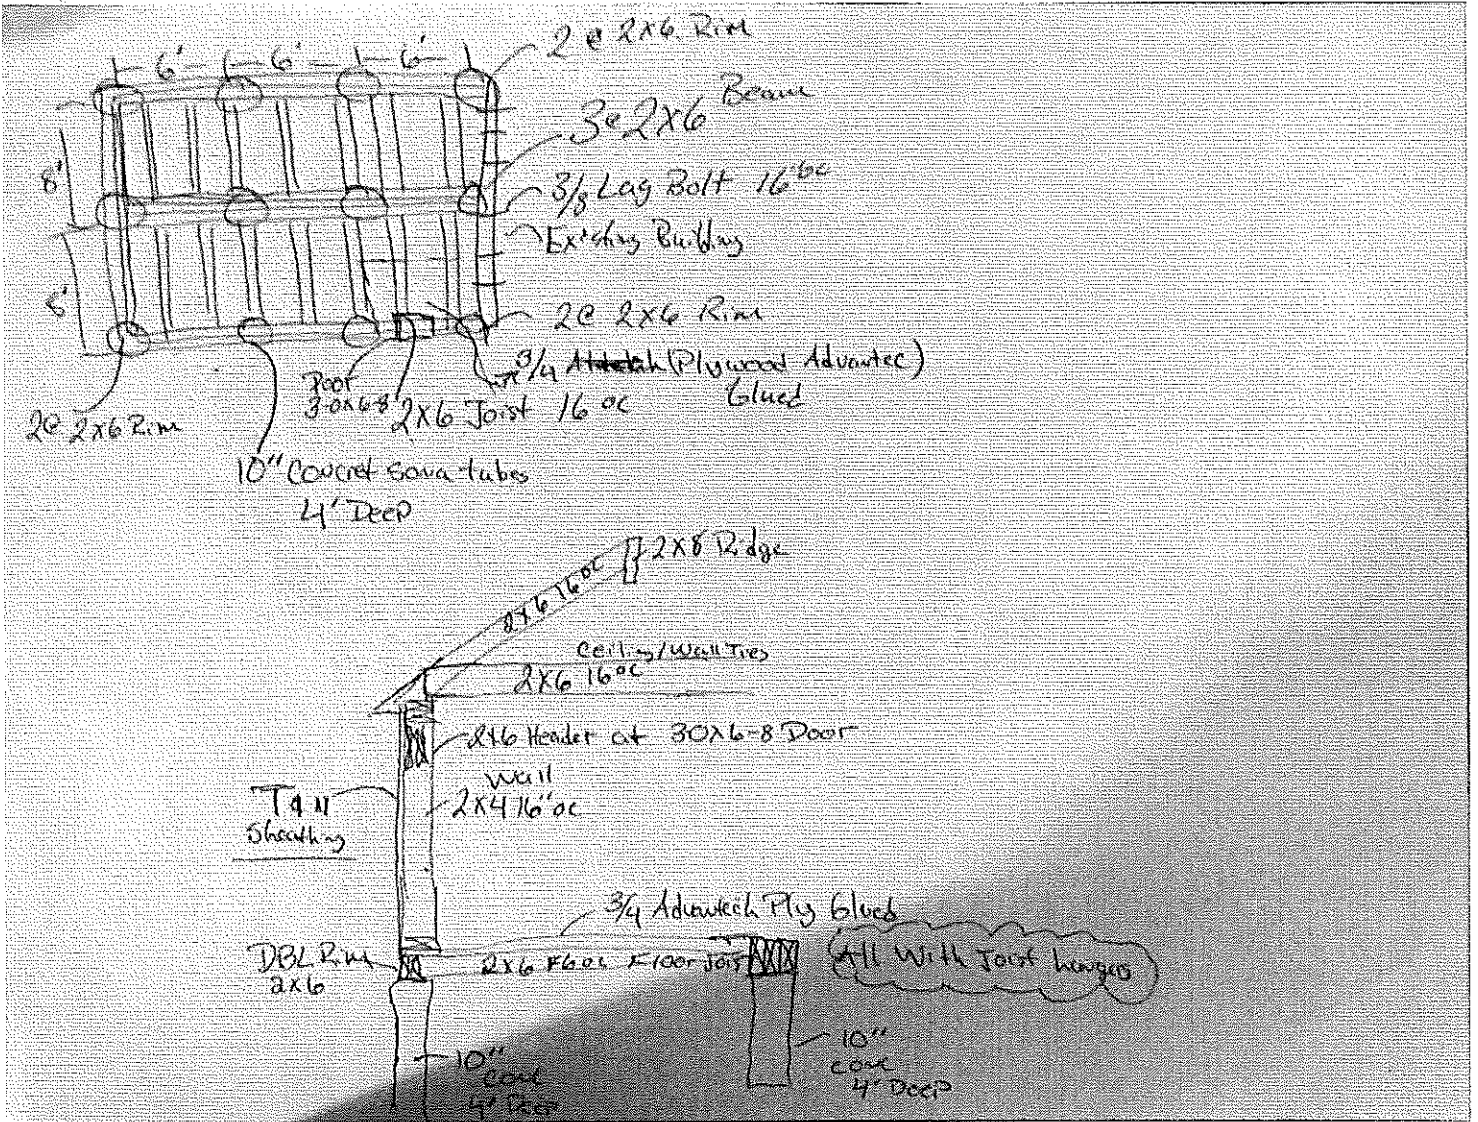 6' 6' 6'
2 @ 2x6 Rim
3@ 2x6 Beam
8'
3/8 Lag Bolt 16" oc
Existing Building
8'
2@ 2x6 Rim
3/4 (Plywood Advantec)
Glued
Door
3-0x6-8
2x6 Joist 16 oc
2@ 2x6 Rim
10" Concret sona-tubes
4' Deep
2x8 Ridge
2x6 16 oc
Ceiling/Wall Ties
2x6 16 oc
2x6 Header at 30x6-8 Door
Wall
2x4 16" oc
T 4 11
Sheathing
3/4 Advantech Ply Glued
DBL Rim
2x6
2x6 16 oc Floor Joist
All With Joist hangers
10"
conc
4' Deep
10"
conc
4' Deep